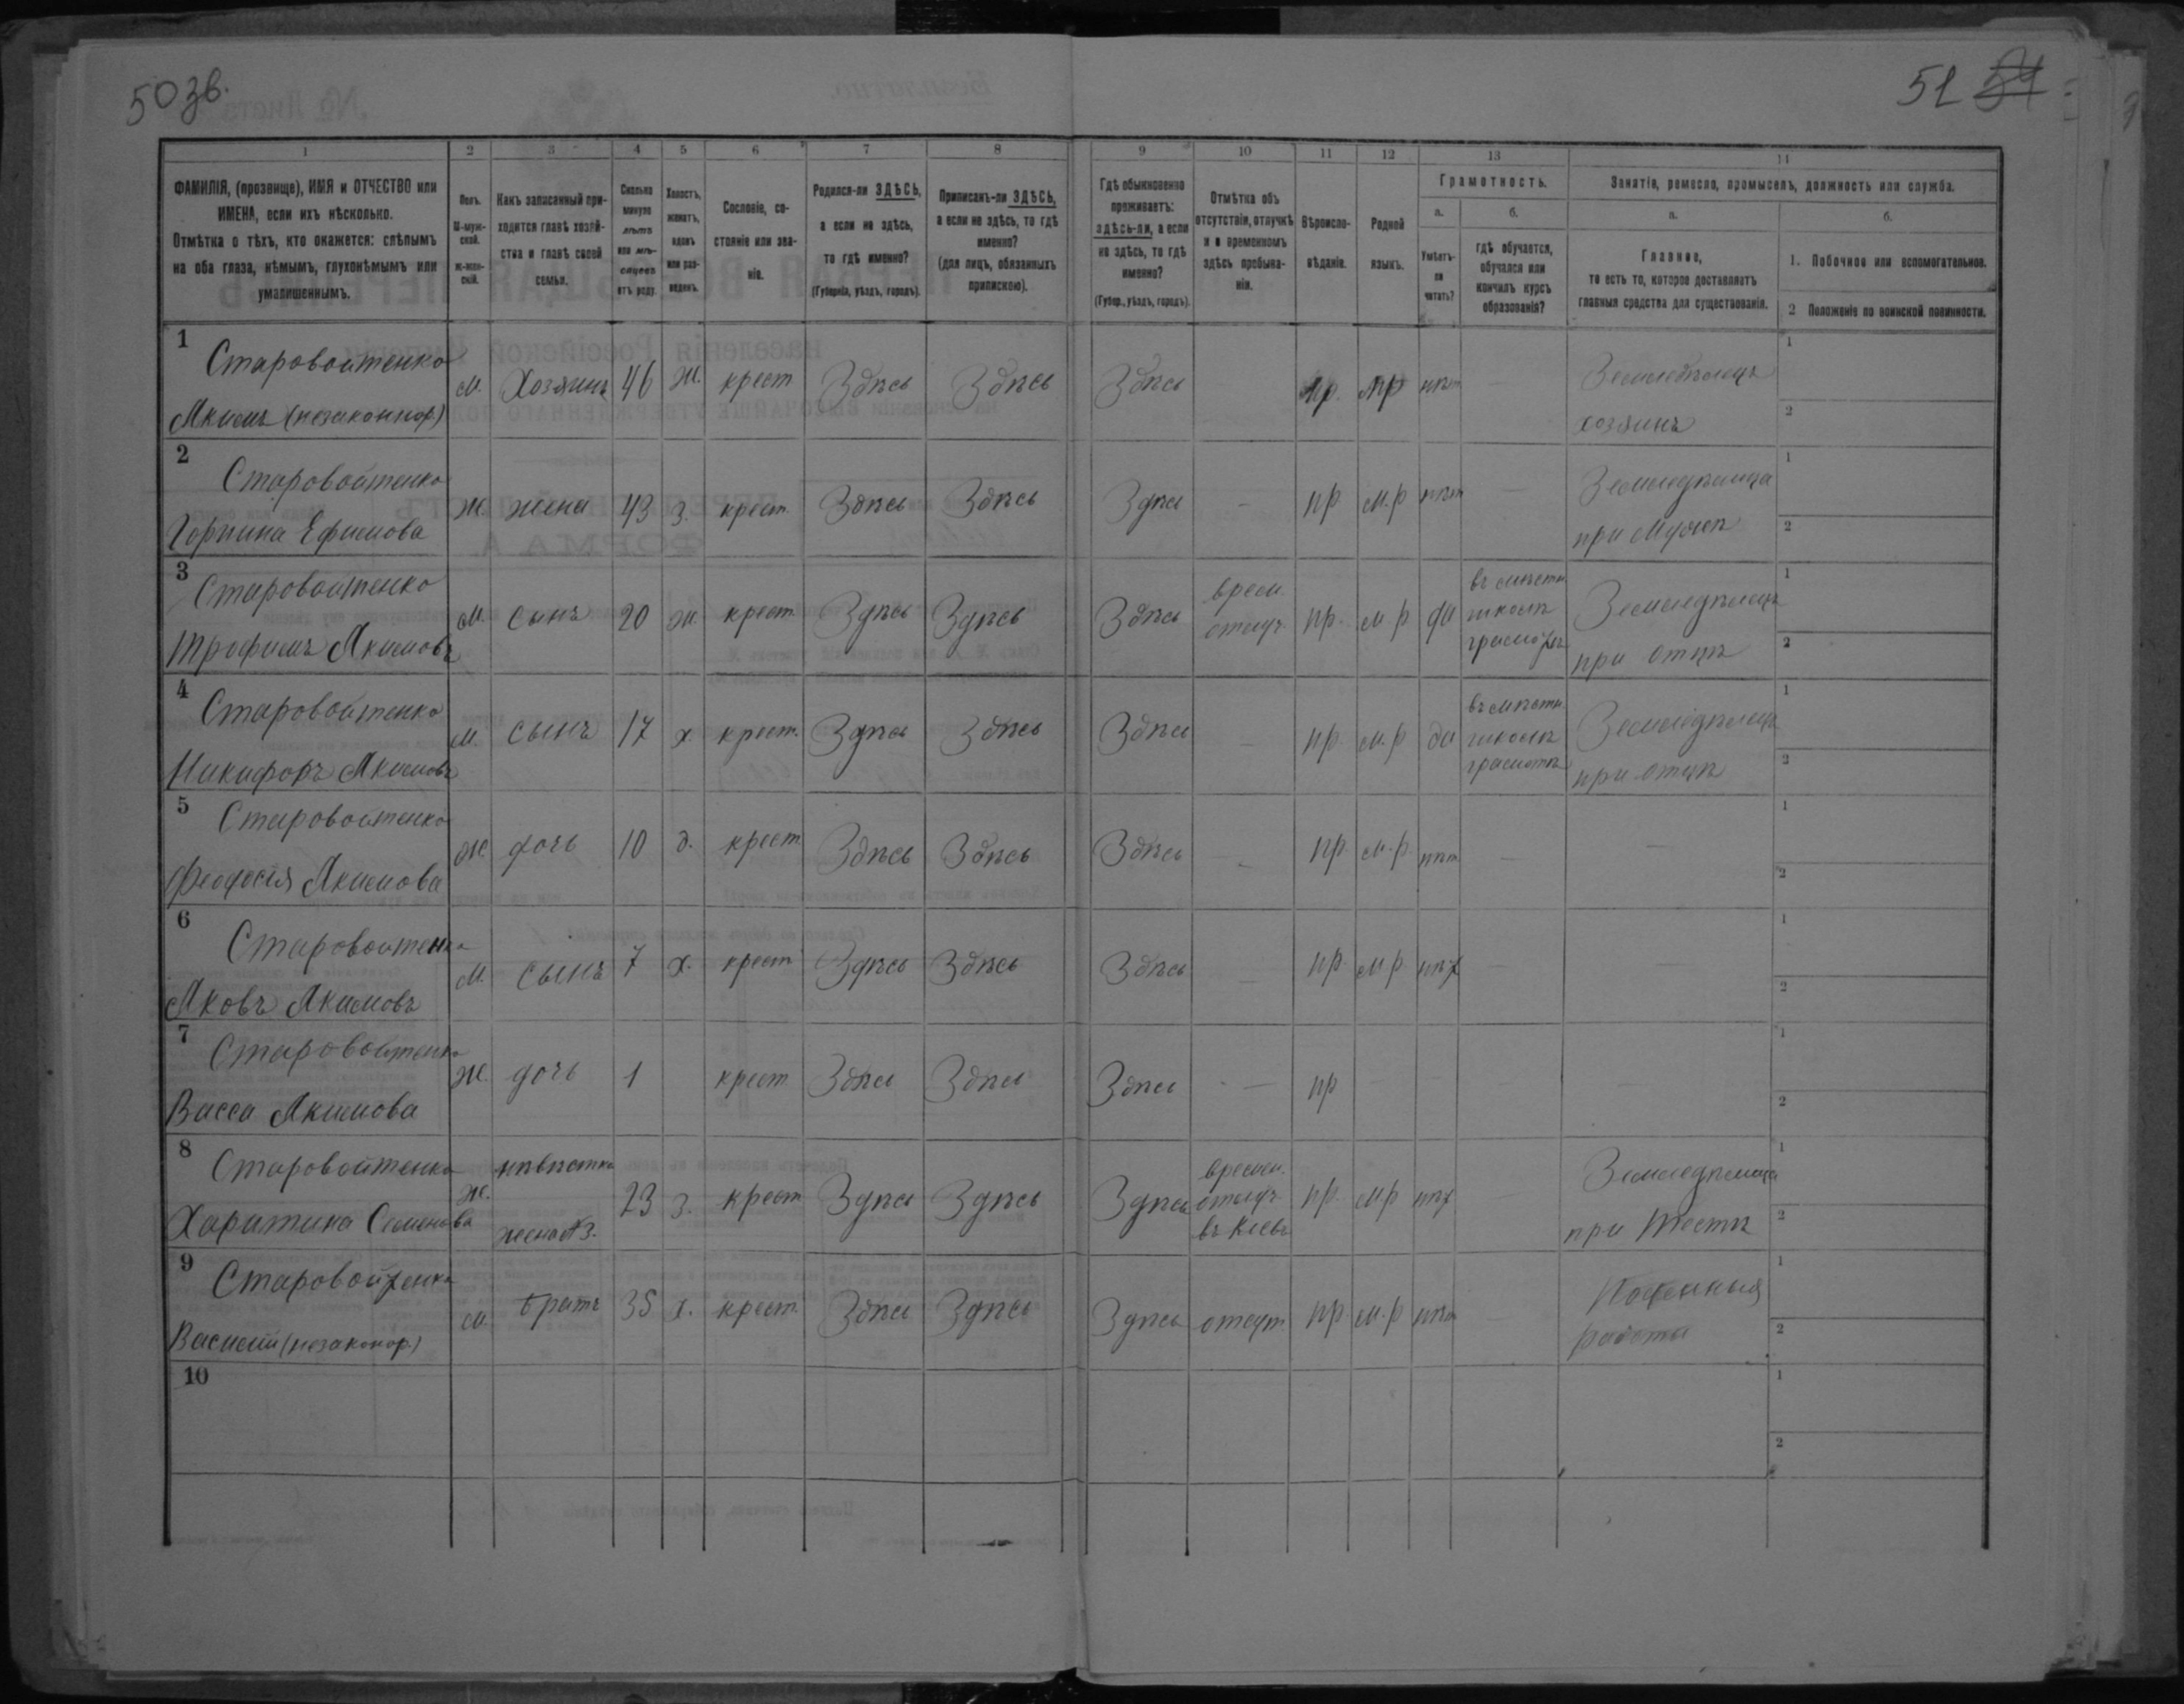 50 зв.
51 51
1 2 3 4 5 6 7 8 9 10 11 12 13 14
ФАМИЛІЯ, (прозвище), ИМЯ и ОТЧЕСТВО или
ИМЕНА, если ихъ нѣсколько.
Отмѣтка о тѣхъ, кто окажется: слѣпымъ
на оба глаза, нѣмымъ, глухонѣмымъ или
умалишеннымъ.
Полъ.
М-муж-
ской.
ж-жен-
скій.
Какъ записанный при-
ходится главѣ хозяй-
ства и главѣ своей
семьи.
Сколько
минуло
лѣтъ
или мѣ-
сяцевъ
отъ роду.
Холостъ,
женатъ,
вдовъ
или раз-
веденъ.
Сословіе, со-
стояніе или зва-
ніе.
Родился-ли ЗДѢСЬ,
а если не здѣсь,
то гдѣ именно?
(Губернія, уѣздъ, городъ).
Приписанъ-ли ЗДѢСЬ,
а если не здѣсь, то гдѣ
именно?
(для лицъ, обязанныхъ
припискою).
Гдѣ обыкновенно
проживаетъ:
здѣсь-ли, а если
не здѣсь, то гдѣ
именно?
(Губер., уѣздъ, городъ).
Отмѣтка объ
отсутствіи, отлучкѣ
и о временномъ
здѣсь пребыва-
ніи.
Вѣроиспо-
вѣданіе.
Родной
языкъ.
Грамотность.
а.
Умѣетъ-
ли
читать?
б.
гдѣ обучается,
обучался или
кончилъ курсъ
образованія?
Занятіе, ремесло, промыселъ, должность или служба.
а.
Главное,
то есть то, которое доставляетъ
главныя средства для существованія.
б.
1. Побочное или вспомогательное.
2 Положеніе по воинской повинности.
1
Старовойтенко
Акимъ (незаконнор)
м. Хозяинъ 46 ж. крест Здѣсь Здѣсь Здѣсь пр. мр нѣт —
Земледѣлецъ
хозяинъ
1
2
2
Старовойтенко
Горпина Ефимова
ж. жена 43 з. крест. Здѣсь Здѣсь Здѣсь — пр м.р нѣт —
Земледѣлица
при мужѣ
1
2
3
Старовойтенко
Трофимъ Акимовъ
м. сынъ 20 ж. крест. Здѣсь Здѣсь Здѣсь
врем.
отлуч.
пр. м р да
въ мѣстн.
школѣ
грамотѣ
Земледѣлецъ
при отцѣ
1
2
4
Старовойтенко
Никифоръ Акимовъ
м. сынъ 17 х. крест. Здѣсь Здѣсь Здѣсь — пр. м.р да
въ мѣстн.
школѣ
грамотѣ
Земледѣлецъ
при отцѣ
1
2
5
Старовойтенко
Феодосія Акимова
ж. дочь 10 д. крест Здѣсь Здѣсь Здѣсь — пр. м.р. нѣт — —
1
2
6
Старовойтенко
Яковъ Акимовъ
м. сынъ 7 х. крест Здѣсь Здѣсь Здѣсь — пр. м р нѣт — —
1
2
7
Старовойтенко
Васса Акимова
ж. дочь 1 крест Здѣсь Здѣсь Здѣсь — пр — — — —
1
2
8
Старовойтенко
Харитина Семенова
ж.
невѣстка
жена №3.
23 з. крест Здѣсь Здѣсь Здѣсь
времен.
отлуч.
въ Кіевъ
пр. мр нѣт —
Земледѣлица
при тестѣ
1
2
9
Старовойтенко
Василій (незаконор.)
м. братъ 35 х. крест. Здѣсь Здѣсь Здѣсь отсут. пр. м.р нѣт —
Поденныя
работы
1
2
10
1
2